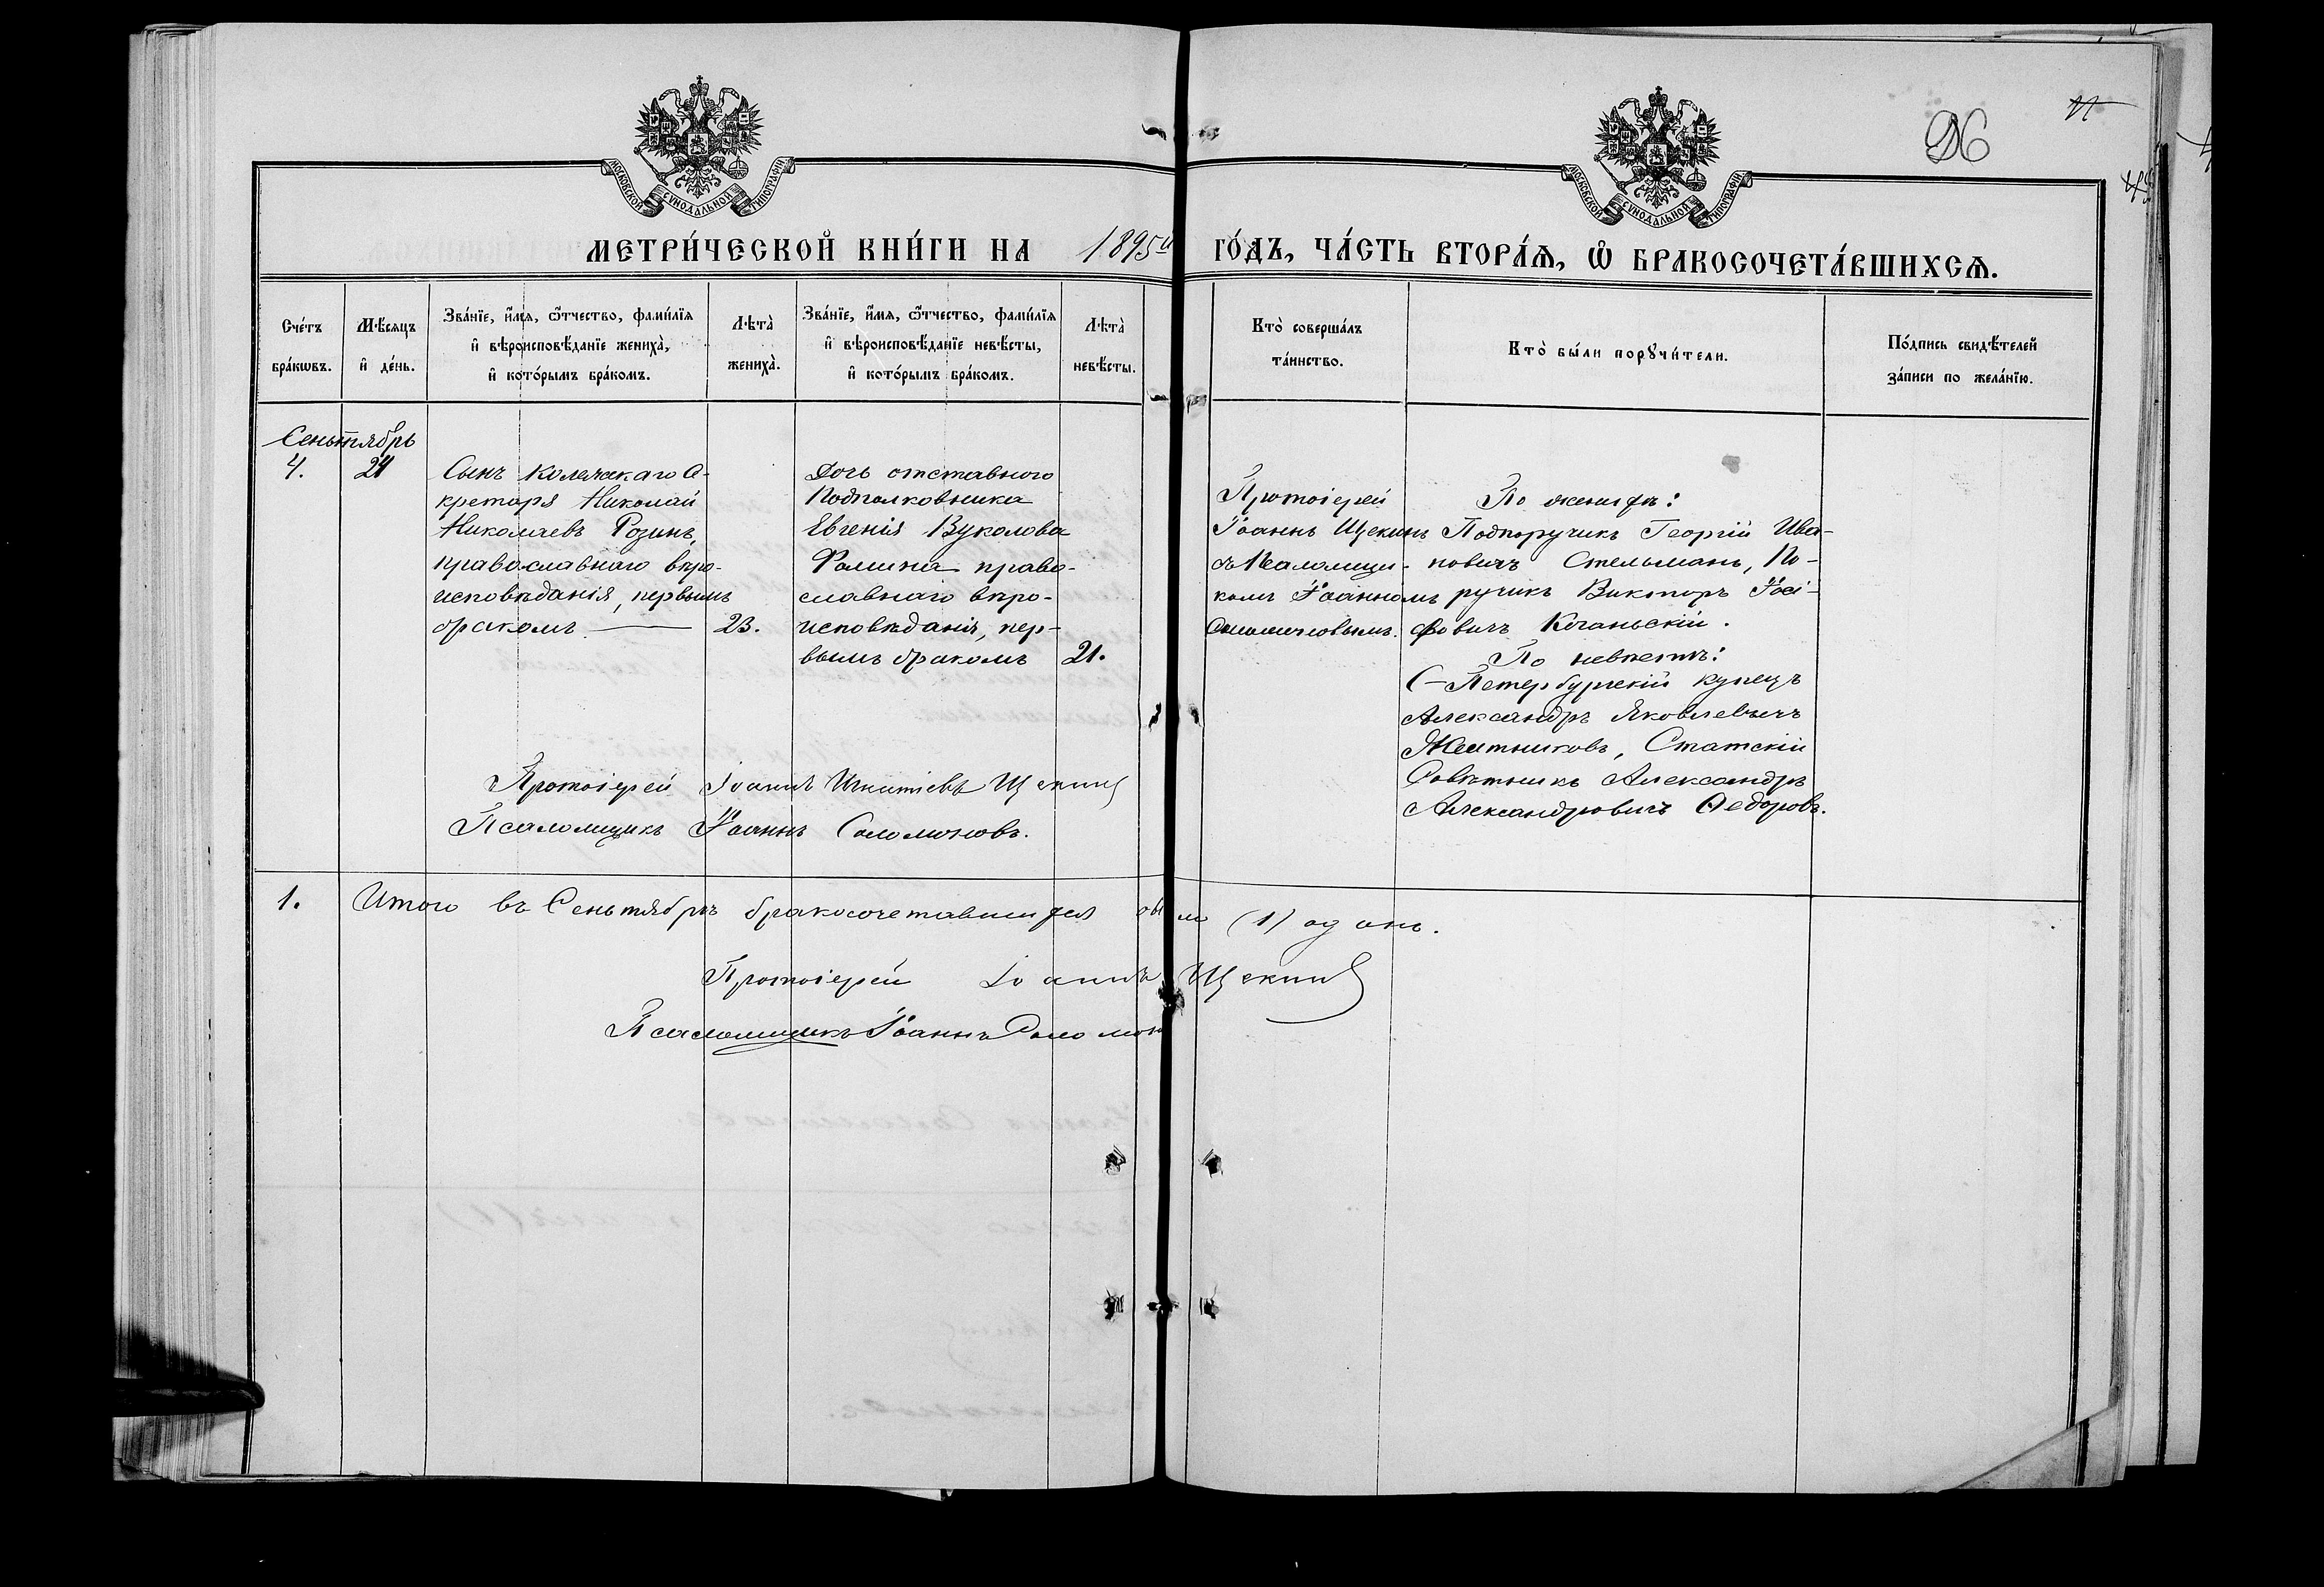 МОСКОВСКОЙ СѴНОДАЛЬНОЙ ТИПОГРАФІИ
МОСКОВСКОЙ СѴНОДАЛЬНОЙ ТИПОГРАФІИ
26
МЕТРИ́ЧЕСКОЙ КНИ́ГИ НА 1895й ГО́ДЪ, ЧА́СТЬ ВТОРА́Ѧ, Ѽ БРАКОСОЧЕТА́ВШИХСѦ.
Сче́тъ
бра́кѡвъ.
Мѣ́сяцъ
и҆ де́нь.
Зва́нїе, и҆́мѧ, ѻ҆́тчество, фами́лїѧ
и҆ вѣроисповѣ́данїе жениха̀,
и҆ кото́рымъ бра́комъ.
Лѣта̀
жениха̀.
Зва́нїе, и҆́мѧ, ѻ҆́тчество, фами́лїѧ
и҆ вѣроисповѣ́данїе невѣ́сты,
и҆ кото́рымъ бра́комъ.
Лѣта̀
невѣ́сты.
Кто̀ соверша́лъ
та́инство.
Кто̀ бы́ли порꙋчи́тели.
По́дпись свидѣ́телей
за́писи по жела́нїю.
Сеньтябрь
4.
24
Сынъ Колежскаго Се-
кретаря Николай
Николаевъ Розинъ,
православнаго вѣро-
исповѣданія, первымъ
бракомъ —
23.
Дочь отставного
Подполковника
Евгенія Вуколова
Фомина право-
славнаго вѣро-
исповѣданія, пер-
вымъ бракомъ
21.
Протоіерей
Іоаннъ Щекинъ
съ Псаломщи-
комъ Іоанномъ
Соломоновымъ.
По женихѣ:
Подпоручикъ Георгій Ива-
новичъ Стельманъ, По-
ручикъ Викторъ Іосі-
фовичъ Коганьскій.
По невѣстѣ:
С-Петербургскій купецъ
Александръ Яковлевичъ
Житниковъ, Статскій
Совѣтникъ Александръ
Александровичъ Ѳедоровъ.
Протоіерей Іоаннъ Игнатіевъ Щекинъ
Псаломщикъ Іоаннъ Соломоновъ.
1.
Итого въ Сеньтябрѣ бракосочетавшихся было (1) одинъ.
Протоіерей Іоаннъ Щекинъ
Псаломщикъ Іоаннъ Соломон